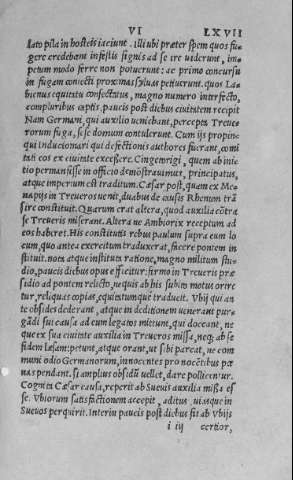 VI LXVII
llato pila in hosteis iaciunt. Illi ubi præter spem quos fu-
gere credebant infestis signis ad se ire uiderunt, im-
petum modo ferre non potuerunt: ac primo concursu
in fugam coniecti proximas syluas petiuerunt. quos La-
bienus equitatu consectatus, magno numero interfecto,
compluribus captis, paucis post diebus ciuitatem recepit
Nam Germani, qui auxilio ueniebant, percepta Treue-
rorum fuga, sese domum contulerunt. Cum ijs propin-
qui Induciomari qui defectionis authores fuerant, comi
tati eos ex ciuitate excessere. Cingentrigi, quem ab inie-
tio permansisse in officio demonstrauimus, principatus,
atque imperium est traditum. Cæsar post, quam ex Me-
napijs in Treueros uenit, duabus de causis Rhenum trā
sire constituit. Quarum erat altera, quod auxilia cōtra
se Treueris miserant. Altera ne Ambiorix receptum ad
eos haberet. His constitutis rebus paulum supra eum lo
cum, quo antea exercitum traduxerat, facere pontem in
stituit. nota atque instituta ratione, magno militum stu-
dio, paucis diebus opus efficitur: firmo in Treueris præ
sidio ad pontem relicto, ne quis ab his subito motus orire
tur, reliquas copias, equitatumque traducit. Vbij qui an
te obsides dederant, atque in deditionem uenerant pur-
gādi sui causa ad eum legatos mittunt, qui doceant, ne
que ex sua ciuitate auxilia in Treueros missa, neq; ab se
fidem læsam: petunt, atque orant, ut sibi parcat, ne com
muni odio Germanorum, innocentes pro nocētibus pœ
nas pendant. si amplius obsidū uellet, dare pollicentur.
Cognita Cæsar causa, reperit ab Sueuis auxilia missa es
se. Vbiorum satisfactionem accepit, aditus, uiasque in
Sueuos perquirit. Interim paucis post diebus fit ab Vbijs
i iij certior,